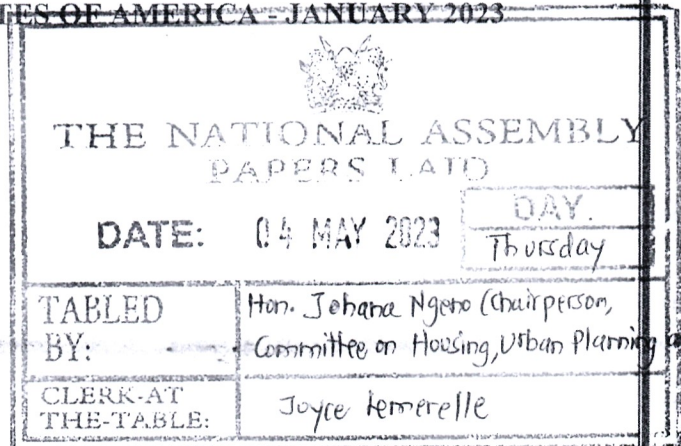 TES OF AMERICA - JANUARY 2023
THE NATIONAL ASSEMBLY
PAPERS LAID
DATE: 04 MAY 2023
DAY.
Thursday
TABLED BY:
Hon. Johana Ngeno (Chairperson,
Committee on Housing, Urban Planning
CLERK-AT THE-TABLE:
Joyce Lemerelle